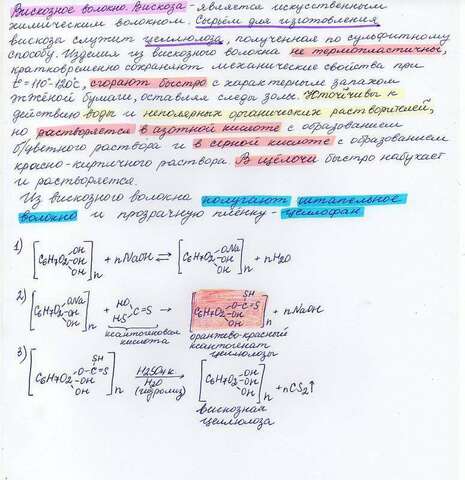 Вискозное волокно. Вискоза - является искусственным
химическим волокном. Сырьём для изготовления
вискоза служит целлюлоза, полученная по сульфитному
способу. Изделия из вискозного волокна не термопластичное,
кратковременно сохраняют механические свойства при
t°=110°-120°C, сгорают быстро с характерным запахом
жжёной бумаги, оставляя следы золы. Устойчивы к
действию воды и неполярных органических растворителей,
но растворяется в азотной кислоте с образованием
б/цветного раствора и в серной кислоте с образованием
красно-кирпичного раствора. В щёлочи быстро набухает
и растворяется.
Из вискозного волокна получают штапельное
волокно и прозрачную плёнку - целлофан
1) [C6H7O2 OH OH OH]n + nNaOH ⇄ [C6H7O2 ONa OH OH]n + nH2O
2) [C6H7O2 ONa OH OH]n + HO HS C=S → [C6H7O2 O-C=S SH OH OH]n + nNaOH
ксантогеновая кислота
оранжево-красный
ксантогенат
целлюлозы
3) [C6H7O2 O-C=S SH OH OH]n H2SO4 к. H2O (гидролиз) → [C6H7O2 OH OH OH]n + nCS2↑
вискозная
целлюлоза